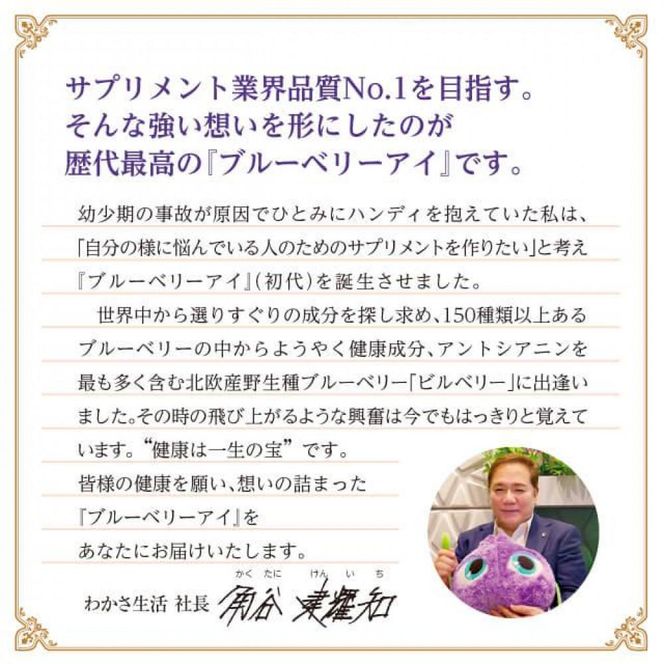 サプリメント業界品質No.1を目指す。
そんな強い想いを形にしたのが
歴代最高の『ブルーベリーアイ』です。
幼少期の事故が原因でひとみにハンディを抱えていた私は、
「自分の様に悩んでいる人のためのサプリメントを作りたい」と考え
『ブルーベリーアイ』(初代)を誕生させました。
世界中から選りすぐりの成分を探し求め、150種類以上ある
ブルーベリーの中からようやく健康成分、アントシアニンを
最も多く含む北欧産野生種ブルーベリー「ビルベリー」に出逢い
ました。その時の飛び上がるような興奮は今でもはっきりと覚えて
います。“健康は一生の宝”です。
皆様の健康を願い、想いの詰まった
『ブルーベリーアイ』を
あなたにお届けいたします。
かくたに けんいち
わかさ生活 社長 角谷 建耀知